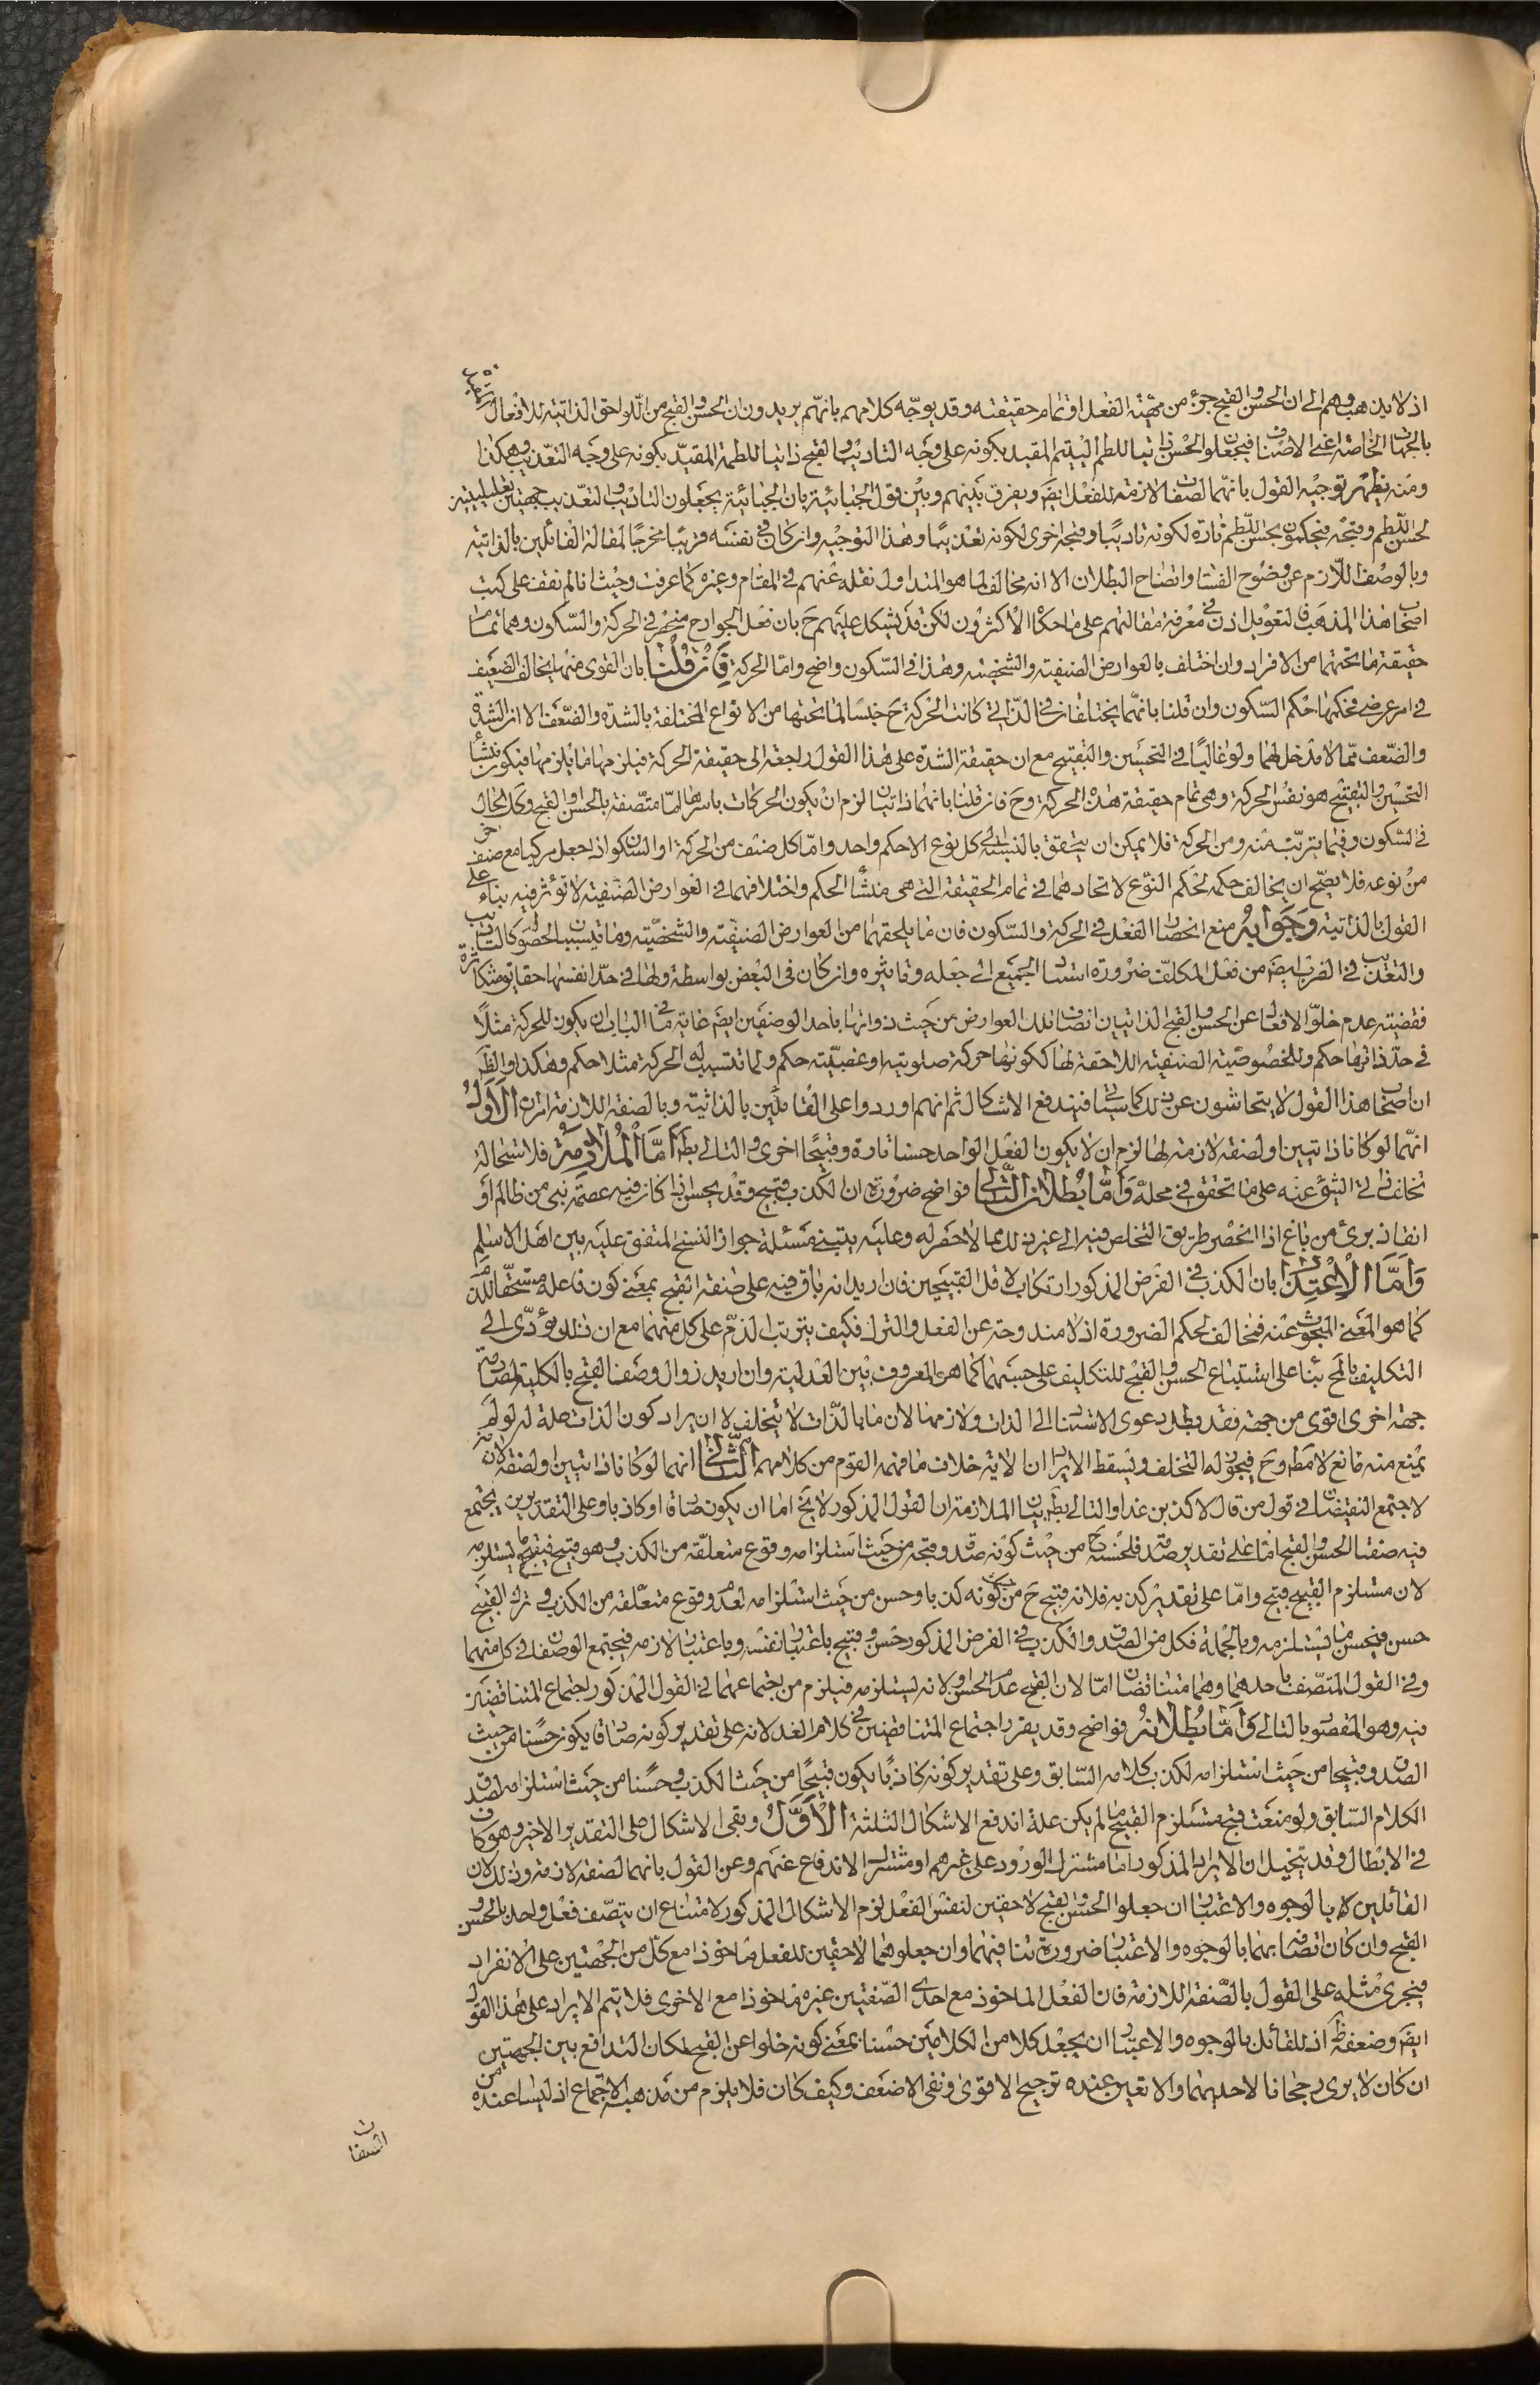 اذ لا يذهب وهم الى ان الحسن والقبح جزء من مهية الفعل او تمام حقيقته وقد يوجّه كلامهم بانهم يريدون ان الحسن والقبح من اللواحق الذاتية للافعال
بالجهات الخاصة اعنى الاصناف فيجعلوا الحسن ذاتيا للطم اليتيم المقيد بكونه على وجه التاديب والقبح ذاتيا للطمة المقيّد بكونه على وجه التعذيب وهكذا
ومنه يظهر توجيه القول بانهما لصفات لازمة للفعل ايضَ ويفرق بينهم وبين قول الجبائية بان الجبائية يجعلون التاديب والتعذيب جهتين تعليليتين
لحسن اللطم وقبحه فيحكمون بحسن اللطم تارة لكونه تاديبًا وقبحه اخرى لكونه تعذيبًا وهذا التوجيه وان كان فى نفسه قريبًا مخرجًا لمقالة القائلين بالذاتية
وبالوصف اللازم عن وضوح الفساد واتضاح البطلان الا انه مخالف لما هو المتداول نقله عنهم فى المقام وغيره كما عرفت وحيث انا لم نقف على كتب
اصحاب هذا المذهب فالتعويل اذن فى معرفة مقالتهم على ما حكاه الاكثرون لكن قد يشكل عليهم حَ بان فعل الجوارح منحصر فى الحركة والسكون وهما تمام
حقيقة ما تحتهما من الافراد وان اختلف بالعوارض الصنفية والشخصية وهذا فى السكون واضح وامّا الحركة فان قلنا بان القوى منها يخالف الضعيف
فى امر عرضى فحكمها حكم السكون وان قلنا بانهما يختلفان فى الذاتى كانت الحركة حَ جنسًا لما تحتها من الانواع المختلفة بالشدة والضعف الا ان الشدة
والضعف ممّا لا مدخل لهما ولو غالبًا فى التحسين والتقبيح مع ان حقيقة الشدة على هذا القول راجعة الى حقيقة الحركة فيلزمها ما يلزمها فيكون منشأ
التحسين والتقبيح هو نفس الحركة وهى تمام حقيقة هذه الحركة وحَ فان قلنا بانهما ذاتيان لزم ان يكون الحركات باسرها امّا متصفة بالحسن او القبح وكذا الحال
فى السكون وفيما يترتب منه ومن الحركة فلا يمكن ان يتحقق بالنسبة الى كل نوع الا حكم واحد وامّا كل صنف من الحركة او السكون اذا جعل مركبا مع صنف آخر
من نوعه فلا يصح ان يخالف حكمه لحكم النوع لاتحادهما فى تمام الحقيقة التى هى منشأ الحكم واختلافهما فى العوارض الصنفية لا تؤثر فيه بناء على
القول بالذاتية وجوابه منع انحصار الفعل فى الحركة والسكون فان ما يلحقهما من العوارض الصنفية والشخصية وما يتسبب لخصوله كالتاديب
والتعذيب فى الضرب ايضَ من فعل المكلف ضرورة استناد الجميع الى جعله وتاثيره وان كان فى البعض بواسطة ولها فى حدّ انفسها حقايق متكاثرة
فقضية عدم خلوّ الافعال عن الحسن والقبح الذاتيان اتصاف تلك العوارض من حيث ذواتها باحد الوصفين ايضَ غاية ما فى الباب ان يكون للحركة مثلًا
فى حدّ ذاتها حكم وللخصوصية الصنفية اللاحقة لها ككونها حركة صلوتية او غصبيّة حكم ولما تتسبب له الحركة مثلا حكم وهكذا والظَ
ان اصحاب هذا القول لا يتحاشون عن ذلك كما سياتى فيندفع الاشكال ثم انهم اوردوا على القائلين بالذاتية وبالصفة اللازمة امران الاول
انهما لو كانا ذاتيين او لصفة لازمة لها لزم ان لا يكون الفعل الواحد حسنا تارة وقبيحًا اخرى والتالى بطَ امّا الملازمة فلاستحالة
تخلف ذاتى الشئ عنه على ما تحقق فى محله وامّا بطلان التالى فواضح ضرورة ان الكذب قبيح وقد يحسن اذا كان فيه عصمة نبى من ظالم او
انقاذ برئ من باغ اذا انحصر طريق التخلص فيه الى غير ذلك مما لا حصر له وعليه يبتنى مسئلة جواز النسخ المتفق عليه بين اهل الاسلم
وامّا الاعتذار بان الكذب فى الفرض المذكور ارتكاب لاقل القبيحين فان اريد انه باق فيه على صفة القبح بمعنى كون فاعله مستحقّا للذم
كما هو المعنى المبحوث عنه فمخالف لحكم الضرورة اذ لا مندوحة عن الفعل والترك فكيف يترتب الذمّ على كل منهما مع ان ذلك يؤدّى الى
التكليف بالمح بناء على استتباع الحسن والقبح للتكليف على حسبهما كما هو المعروف بين العدلية وان اريد زوال وصف القبح بالكلية لمصادمة
جهة اخرى اقوى من جهته فقد بطل دعوى الاستناد الى الذات ولازمها لان ما بالذات لا يتخلف الا ان يراد كون الذات علة له لو لم
يمنع منه مانع لا مطَ وحَ فيجوز له التخلف ويسقط الايراد الا انه خلاف ما فهمه القوم من كلامهم الثانى انهما لو كانا ذاتيين او لصفة لازمة
لاجتمع النقيضان فى قول من قال لاكذبن غدا والتالى بطَ بيان الملازمة ان القول المذكور لا يخ اما ان يكون صادقا او كاذبا وعلى التقديرين يجتمع
فيه صفتا الحسن والقبح امّا على تقدير صدقه فلحسنه حَ من حيث كونه صدقا وقبحه من حيث استلزامه وقوع متعلقه من الكذب وهو قبيح فيقبح ما يستلزمه
لان مستلزم القبيح قبيح وامّا على تقدير كذبه فلانه قبيح حَ من حيث كونه كذبا وحسن من حيث استلزامه لعدم وقوع متعلقه من الكذب فى ترك القبيح
حسن فيحسن ما يستلزمه وبالجملة فكل من الصدق والكذب فى الفرض المذكور حسن وقبيح باعتبار نفسه وباعتبار لازمه فيجتمع الوصفان فى كل منهما
وفى القول المتصف باحدهما وهما متناقضان امّا لان القبح عدم الحسن او لانه يستلزمه فيلزم من اجتماعهما فى القول المذكور اجتماع المتناقضين
فيه وهو المقصود بالتالى وامّا بطلانه فواضح وقد يقرر اجتماع المتناقضين فى كلام الغد لانه على تقدير كونه صادقا يكون حسنًا من حيث
الصدق وقبيحا من حيث استلزامه لكذب كلامه السّابق وعلى تقدير كونه كاذبًا يكون قبيحًا من حيث الكذب وحسنًا من حيث استلزامه لصدق
الكلام السّابق ولو منعت قبح مستلزم القبيح ما لم يكن علة اندفع الاشكال الثلثة الاوّل وبقى الاشكال على التقدير الاخير وهو كاف
فى الابطال وقد يتخيل ان الايراد المذكور اما مشترك الورود على غيرهم او مشترك الاندفاع عنهم وعن القول بانهما لصفة لازمة وذلك لان
القائلين بالوجوه والاعتبار ان جعلوا الحسن والقبح لاحقين لنفس الفعل لزم الاشكال المذكور لامتناع ان يتصف فعل واحد بالحسن و
القبح وان كان اتصافه بهما بالوجوه والاعتبار ضرورة تنافيهما وان جعلوهما لاحقين للفعل ماخوذا مع كلّ من الجهتين على الانفراد
فيجرى مثله على القول بالصفة اللازمة فان الفعل الماخوذ مع احدى الصفتين غيره ماخوذا مع الاخرى فلا يتم الايراد على هذا القول
ايضَ وضعفه ظَ اذ للقائل بالوجوه والاعتبار ان يجعل كلا من الكلامين حسنا بمعنى كونه خلوا عن القبح لمكان التدافع بين الجهتين
ان كان لا يرى رجحانا لاحديهما والا تعين عنده ترجيح الاقوى ونفى الاضعف وكيف كان فلا يلزم من مذهبه الاجتماع اذ ليسا عنده من
الصفات